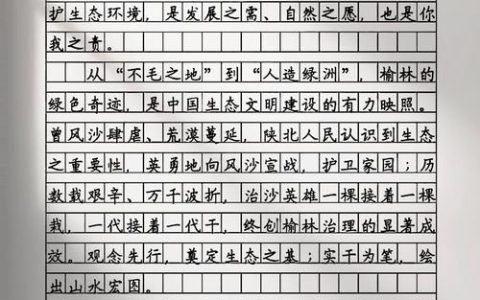 护生态环境，是发展之需、自然之愿，也是你
我之责。
从“不毛之地”到“人造绿洲”，榆林的
绿色奇迹，是中国生态文明建设的有力映照。
曾风沙肆虐、荒漠蔓延，陕北人民认识到生态
之重要性，英勇地向风沙宣战，护卫家园；历
数载艰辛、万千波折，治沙英雄一棵接着一棵
栽，一代接着一代干，终创榆林治理的显著成
效。观念先行，奠定生态之基；实干为笔，绘
出山水宏图。